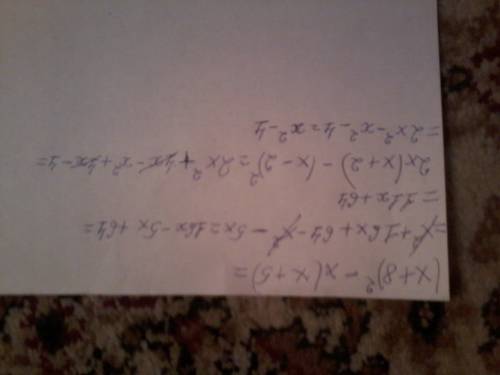 (x+8)²-x(x+5)=
=x²+16x+64-x²-5x=16x-5x+64=
=11x+64
2x(x+2)-(x-2)²=2x²+4x-x²+4x-4=
=2x²-x²-4=x²-4